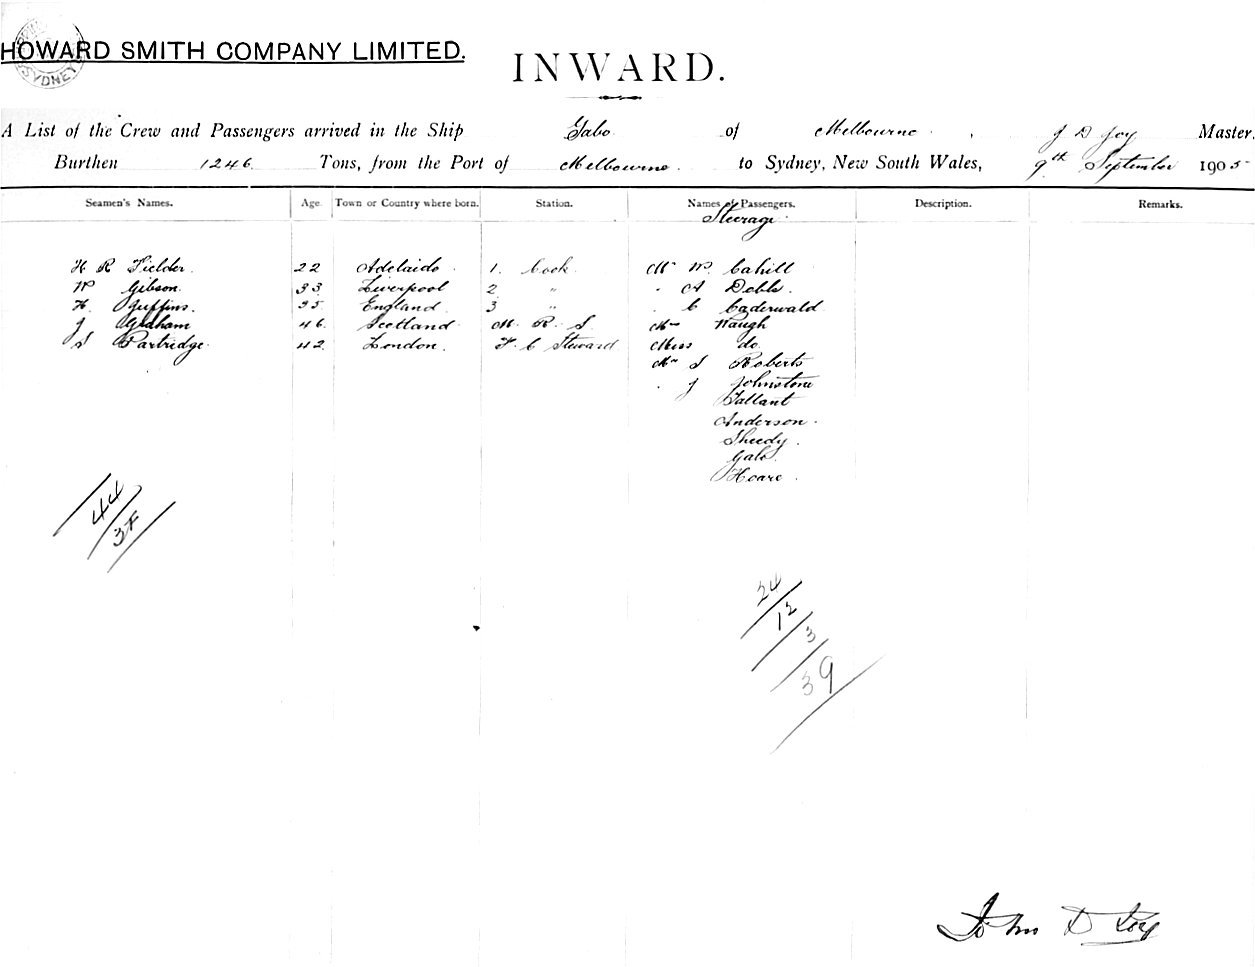 HOWARD SMITH COMPANY LIMITED.
SYDNEY
INWARD.
A List of the Crew and Passengers arrived in the Ship Gabo of Melbourne, J D Joy Master,
Burthen 1246 Tons, from the Port of Melbourne to Sydney, New South Wales, 9th September 1905
Seamen's Names. Age. Town or Country where born. Station. Names of Passengers. Description. Remarks.
Steerage
H R Fielder 22 Adelaide 1. Cook Mr W. Cahill
W Gibson 33 Liverpool 2 " " A Dobbs
H. Guffins 35 England 3 " " C Caderwald
J Graham 46 Scotland M. R. S Mrs Waugh
S Partridge 42 London F. C Steward Miss do
Mr S Roberts
" J Johnstone
Tallant
Anderson
Sheedy
Gale
Hoare
44
37
24
12
3
39
John D Joy